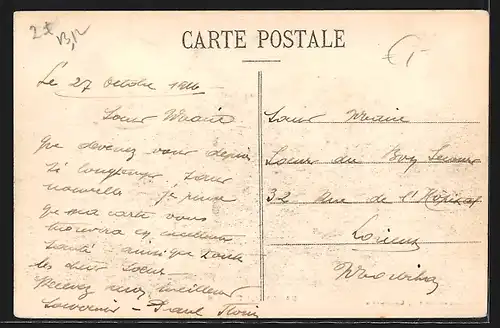 CARTE POSTALE
Le 27 Octobre 1916
Sœur Marie
que devenez vous depuis
si longtemps sans
nouvelle je pense
que ma carte vous
trouvera en excellente
santé ainsi que toute
les deux sœur
Recevez mes meilleur
souvenir - Paul
Sœur Marie
Soeur du Bon Secours
32 Rue de l'Hôpital
Lorient
Morbihan